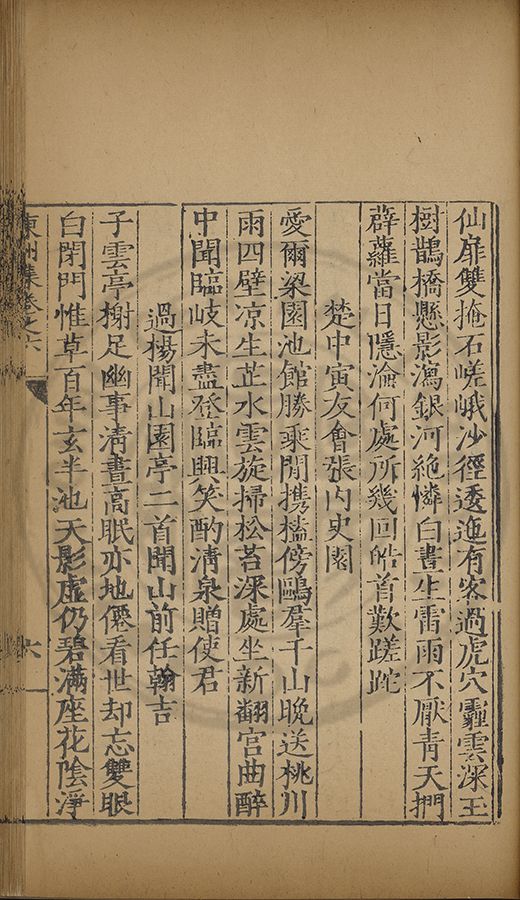 仙扉雙掩石嵯峨沙徑透迤有客過虎穴靈雲深玉
樹鵲橋懸影瀉銀河絶憐白晝生雷雨不厭青天捫
薜蘿當日隱淪何處所幾回皓首歎蹉跎
楚中寅友會張内史園
愛爾梁園池館勝乘閒携榼傍鷗羣千山晩送桃川
雨四壁凉生芷水雲旋掃松苔深處坐新翻宫曲醉
中聞臨岐未盡登臨興笑酌清泉贈使君
過楊聞山園亭二首聞山前任翰吉
子雲亭榭足幽事清晝高眠亦地僊看世却忘雙眼
白閉門惟草百年玄半池天影虚仍碧滿座花陰淨
東洲集卷之六
六